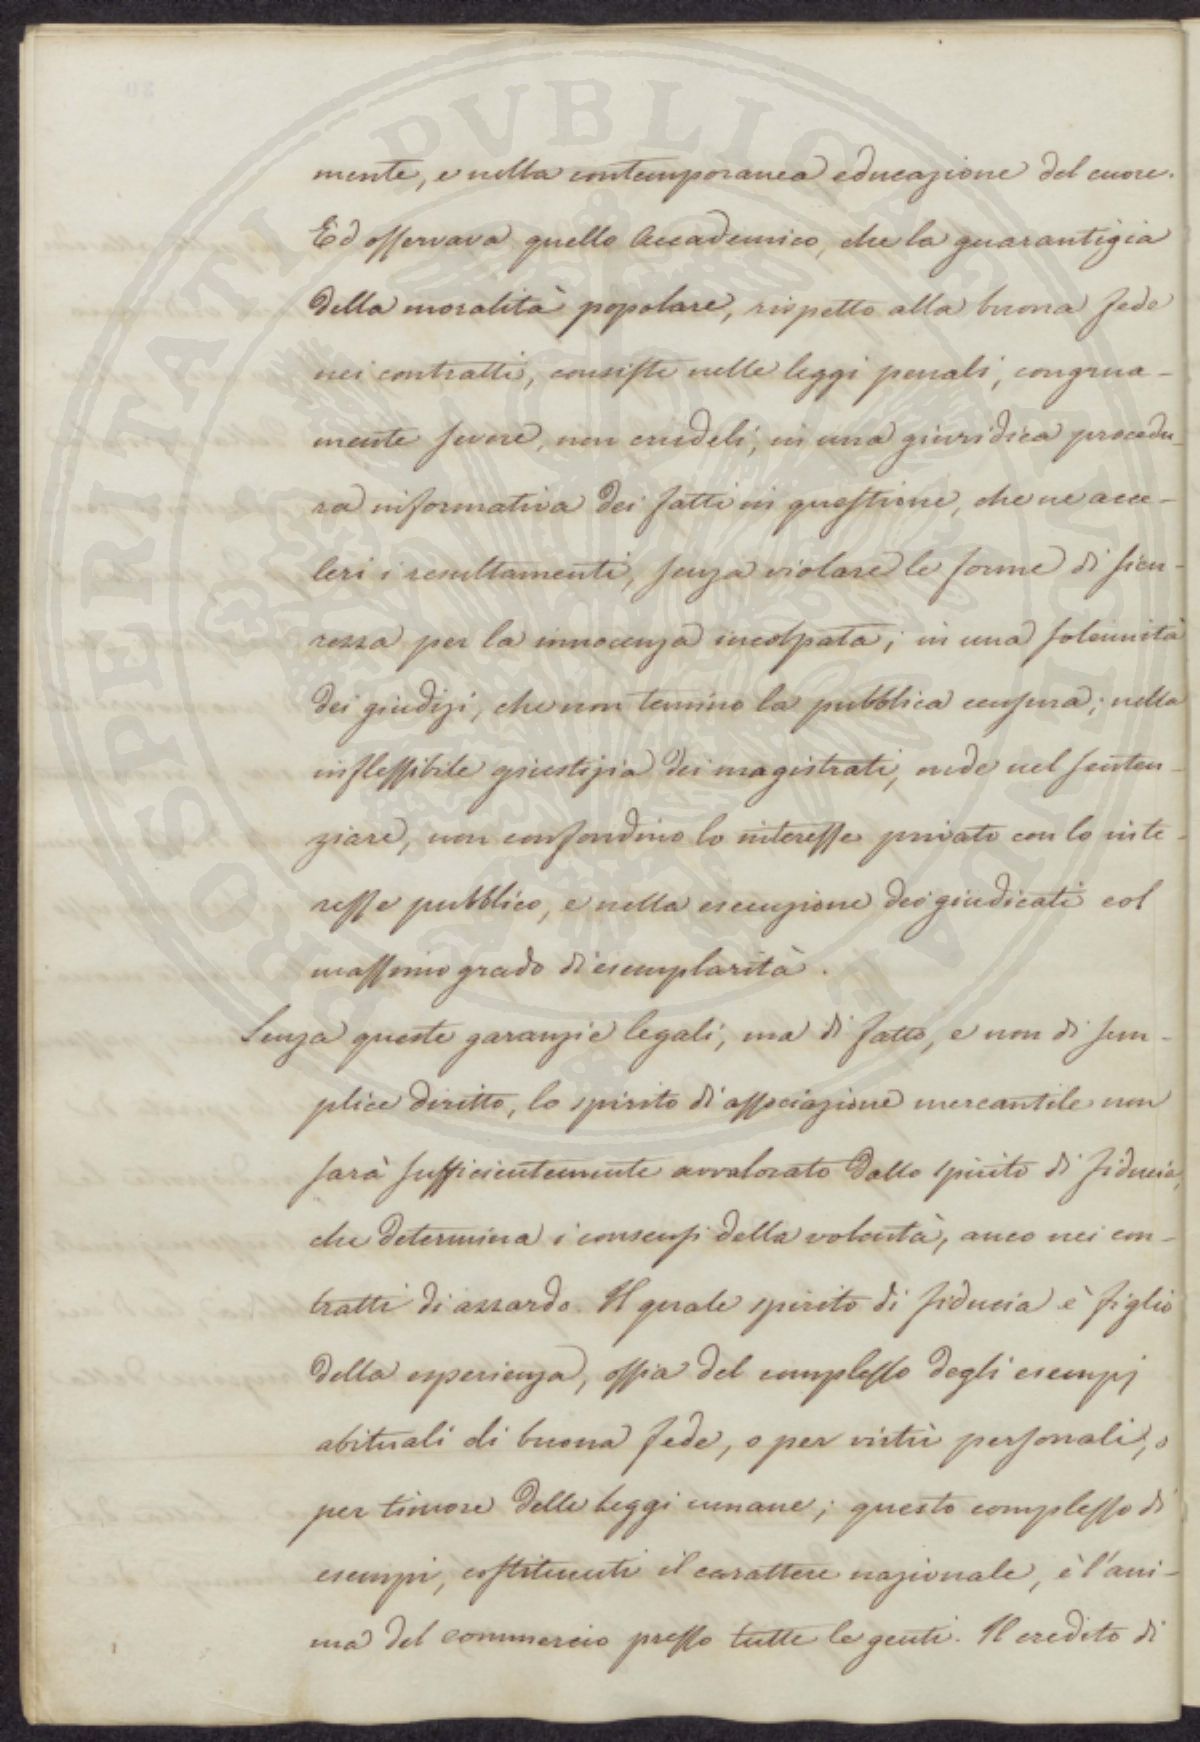 mente, e nella contemporanea educazione del cuore.
Ed osservava quello Accademico, che la guarantigia
della moralità popolare, rispetto alla buona fede
nei contratti, consiste nelle leggi penali, congrua-
mente severe, non crudeli; in una giuridica procedu-
ra informativa dei fatti in questione, che ne acce-
leri i resultamenti, senza violare le forme di sicu-
rezza per la innocenza incolpata; in una solennità
dei giudizi, che non temino la pubblica censura; nella
inflessibile giustizia dei magistrati, onde nel senten-
ziare, non confondino lo interesse privato con lo inte-
resse pubblico, e nella esecuzione dei giudicati col
massimo grado di esemplarità.
Senza queste garanzie legali, ma di fatto, e non di sem-
plice diritto, lo spirito di associazione mercantile non
sarà sufficientemente avvalorato dallo spirito di fiducia,
che determina i consensi della volontà, anco nei con-
tratti di azzardo. Il quale spirito di fiducia è figlio
della esperienza, ossia del complesso degli esempj
abituali di buona fede, o per virtù personali, o
per timore delle leggi umane; questo complesso di
esempi, costituenti il carattere nazionale, è l'ani-
ma del commercio presso tutte le genti. Il credito di
PROSPERITATI PVBLICAE AVGENDAE